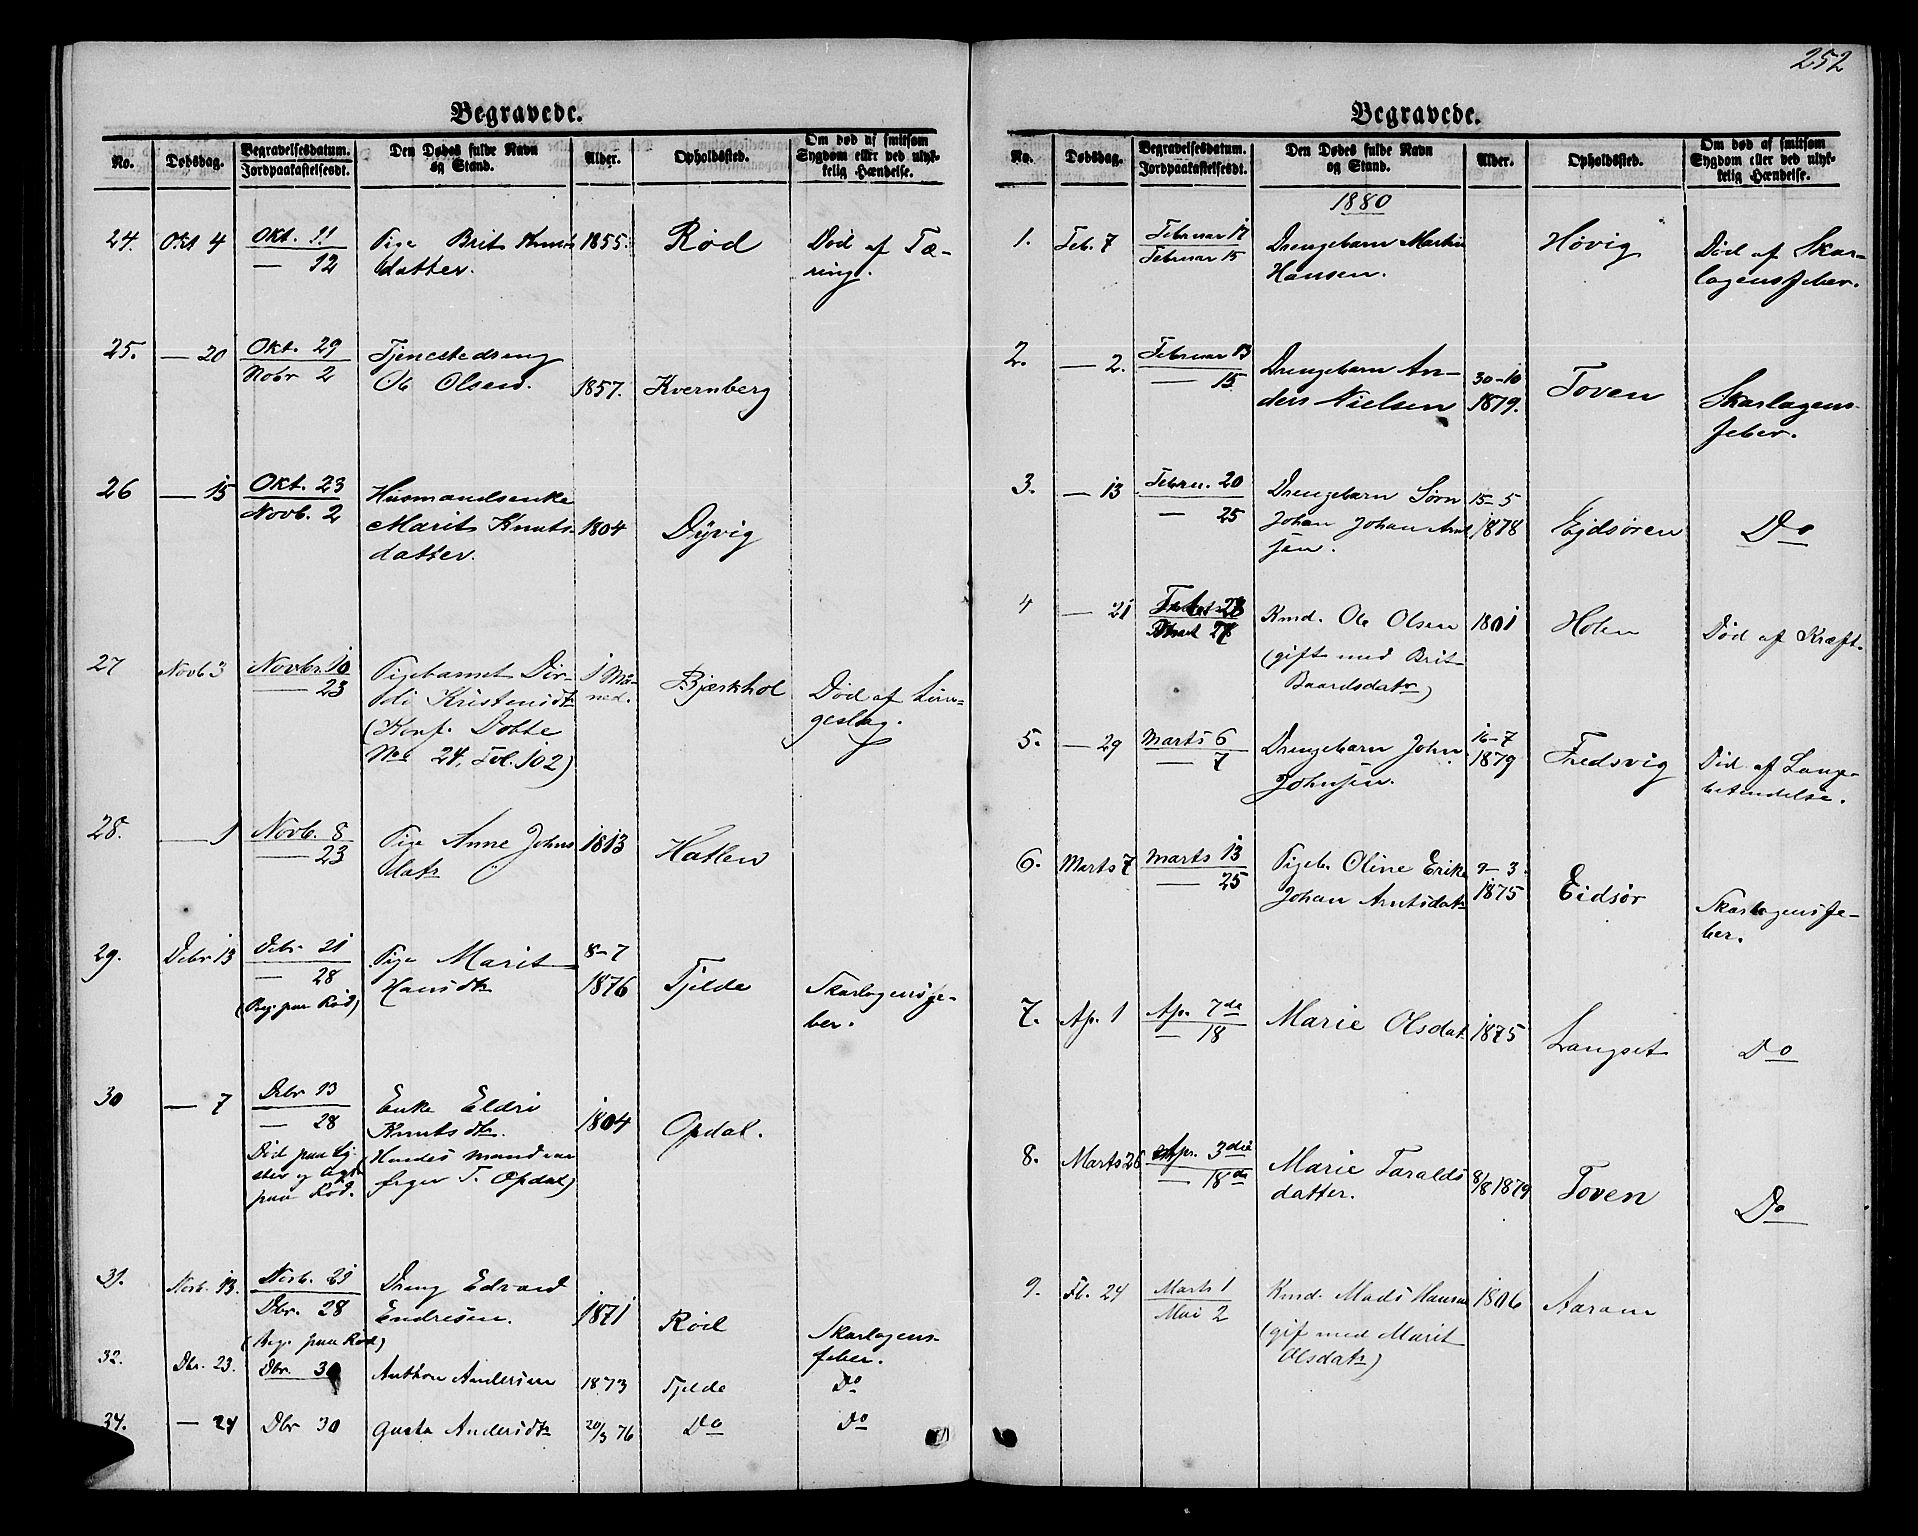 252
Begravede.
No. Dødsdag. Begravelsesdatum. Jordpaakastelsesdt. Den Dødes fulde Navn og Stand. Alder. Opholdssted. Om død af smitsom Sygdom eller ved ulykkelig Hændelse.
24. Okt 4 Okt. 11 Pige Brit Knuts 1855. Rød Død af Tæ-
— 12 datter. ring.
25. — 20 Okt. 29 Tjenestedreng
Nobr 2 Ole Olsen. 1857. Kvernberg
26 — 15 Okt. 23 Husmandsenke
Novb. 2 Marit Knuts- 1804 Dÿvig
datter.
27 Novb 3 Novbr. 10 Pigebarnet Dor- 1 Må- Bjerkhol Død af
— 23 di Kristensdt ned.
(Konf. Dobte
No 24, Fol. 102)
28. — 1 Novb. 8 Pige Anne Johns 1813 Hatlen
— 23 datr
29. Debr 13 Debr 21 Pige Marit 8-7
— 28 Hansdtr 1876 Tjelde Skarlagensfe-
(Beg. paa Rød) ber.
30 — 7 Dbr 13 Enke Eldri
— 28 Knutsdtr. 1804 Opdal.
Død paa
(Hendes mand var
paa Rød. T. Opdal)
31. Novb. 13. Novb. 21 Dreng Edvard
Dbr. 28 Endresen. 1871 Rød Skarlagens-
(Beg. paa Rød) feber.
32. Dbr. 23. Dbr 30 Anthon Andersen 1873 Tjelde Do
34. — 24 Dbr 30 Gusta Andersdtr 20/3 76 Do Do
Begravede.
No. Dødsdag. Begravelsesdatum. Jordpaakastelsesdt. Den Dødes fulde Navn og Stand. Alder. Opholdssted. Om død af smitsom Sygdom eller ved ulykkelig Hændelse.
1880
1. Feb. 7 Februar 17 Drengebarn Martin Høvig Død af Skar-
Februar 15 Hansen. lagensfeber.
2. — 2. Februar 13 Drengebarn An- 30-10
— 15 ders Nielsen 1879. Toven Skarlagens-
feber.
3. — 13 Febru. 20 Drengebarn Sørn 15-5
— 25 Johan Johan Arnt 1878 Ejdsøren Do
sen.
4 — 21 Kmd. Ole Olsen 1801 Holen Død af Kræft.
(gift med Brit
Baardsdatr)
5. — 29 Marts 6 Drengebarn John 16-7
— 7 Johnsen. 1879 Fredsvig Død af Lunge-
betændelse.
6. Marts 7 Marts 13 Pigeb. Oline Erike 9-3
— 25 Johan Arntsdatr 1875 Eidsør Skarlagensfe-
ber.
7. Ap. 1 Ap. 7de Marie Olsdat. 1875 Langset Do
— 18
8. Marts 26 Apr. 3die Marie Taralds 8/8 1879 Toven Do
— 18de datter.
9. Fb. 24 Marts 1 Kmd. Mads Hansen 1806 Aaram
Mai 2 (gif med Marit
Olsdatr)